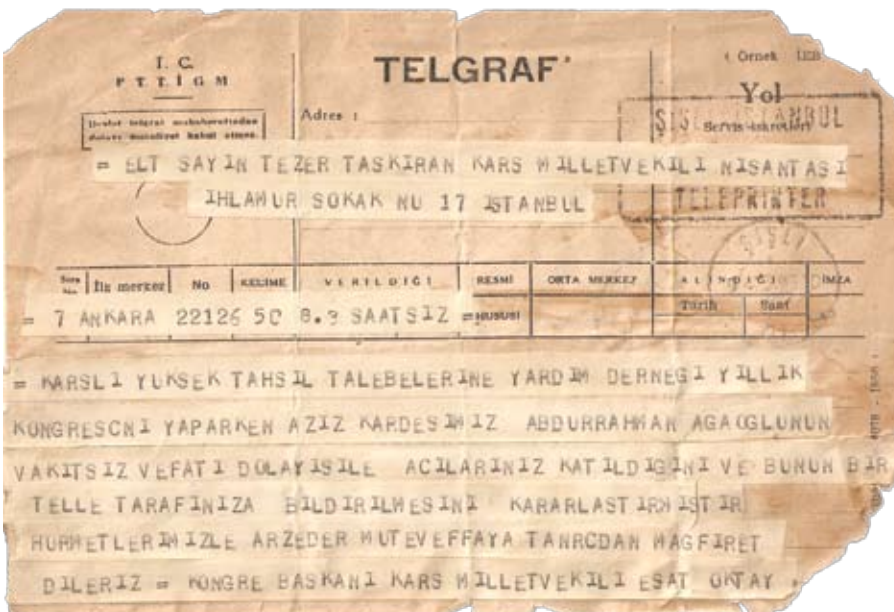 T. C.
P T T İ G M
TELGRAF
( Örnek
Yol
Adres :
Servis
ŞİŞLİ İSTANBUL
TELEPRINTER
= ELT SAYIN TEZER TASKIRAN KARS MILLETVEKILI NISANTASI
IHLAMUR SOKAK NU 17 ISTANBUL
Sıra No. İlk merkez No KELİME VERİLDİĞİ RESMİ ORTA MERKEZ ALINDIĞI İMZA
Tarih Saat
= 7 ANKARA 22126 50 8.9 SAATSIZ = HUSUSI
= KARSLI YUKSEK TAHSIL TALEBELERINE YARDIM DERNEGI YILLIK
KONGRESCNI YAPARKEN AZIZ KARDESIMIZ ABDURRAHMAN AGAOGLUNUN
VAKITSIZ VEFATI DOLAYISILE ACILARINIZ KATILDIGINI VE BUNUN BIR
TELLE TARAFINIZA BILDIRILMESINI KARARLASTIRMISTIR
HURMETLERIMIZLE ARZEDER MUTEVEFFAYA TANRCDAN MAGFIRET
DILERIZ = KONGRE BASKANI KARS MILLETVEKILI ESAT OKTAY .